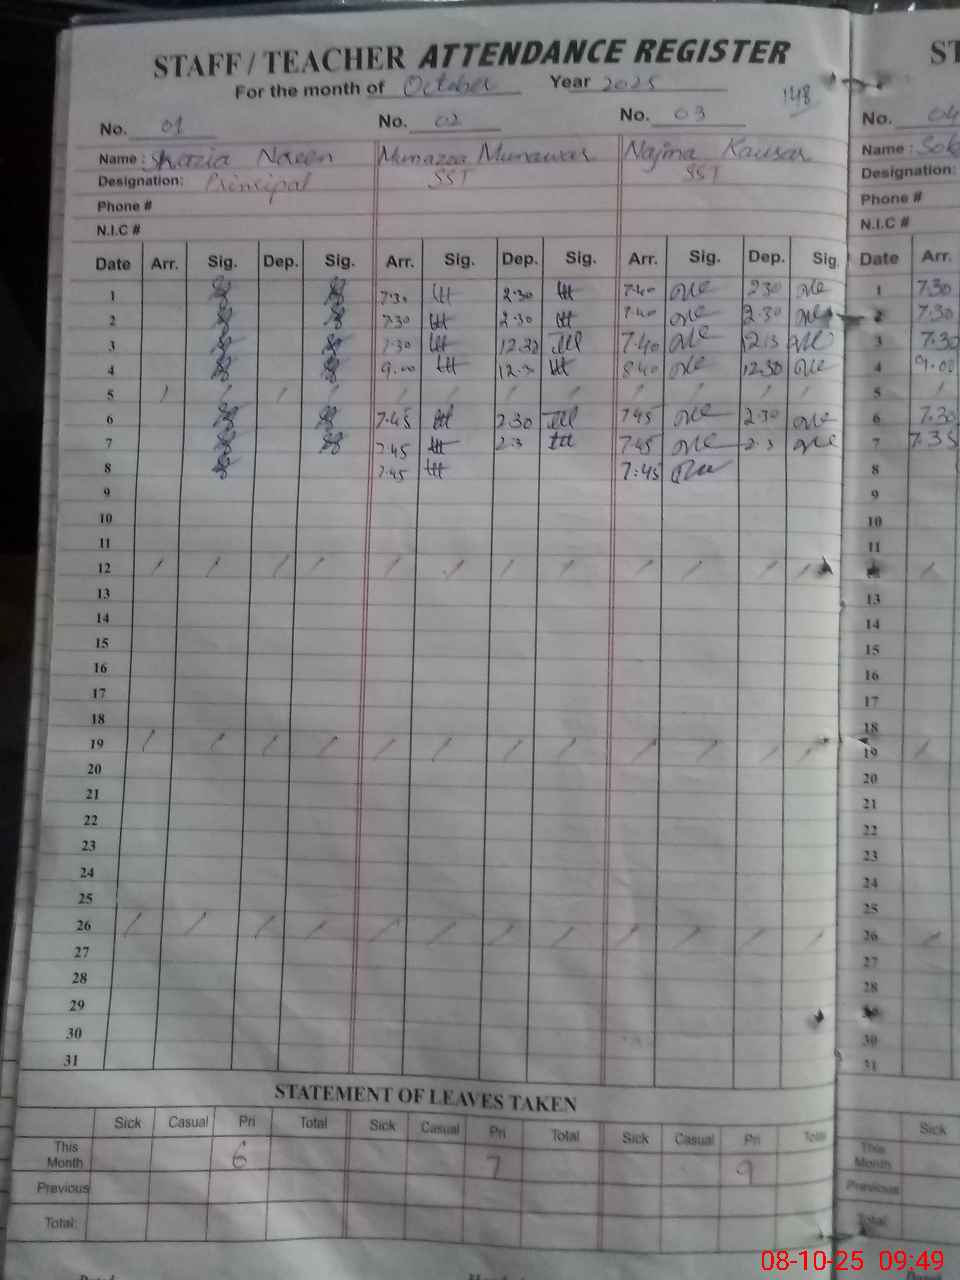 STAFF / TEACHER ATTENDANCE REGISTER ST
For the month of October Year 2025 148
No. 01 No. 02 No. 03 No. 04
Name : Shazia Naeen Munazza Munawar Najma Kausar Name :
Designation: Principal SST SST Designation:
Phone # Phone #
N.I.C # N.I.C #
Date Arr. Sig. Dep. Sig. Arr. Sig. Dep. Sig. Arr. Sig. Dep. Sig. Date Arr.
1 7.30 2.30 7.40 2 30 1 7.30
2 7.30 2.30 7.40 2.30 2 7.30
3 7.30 12.30 7.40 3 7.30
4 9.00 12.3 8.40 12.30 4 9.00
5 / / / / / / / / / / / 5 /
6 7.45 2.30 7.45 2.30 6 7.30
7 7.45 2.3 7.45 2.3 7 7.35
8 7.45 7:45 8
9 9
10 10
11 11
12 / / / / / / / / / / / / /
13 13
14 14
15 15
16 16
17 17
18 18
19 / / / / / / / / / / / / 19 /
20 20
21 21
22 22
23 23
24 24
25 25
26 / / / / / / / / / / / / 26 /
27 27
28 28
29
30 30
31 31
STATEMENT OF LEAVES TAKEN
Sick Casual Pri Total Sick Casual Pri Total Sick Casual Pri Total Sick
This Month 6 7 9 This Month
Previous Previous
Total: Total
08-10-25 09:49